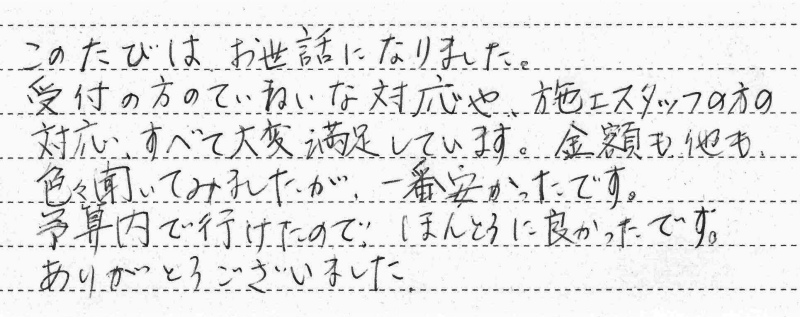 このたびは、お世話になりました。
受付の方のていねいな対応や、施工スタッフの方の
対応、すべて大変満足しています。金額も他も、
色々聞いてみましたが、一番安かったです。
予算内で行けたので、ほんとうに良かったです。
ありがとうございました。